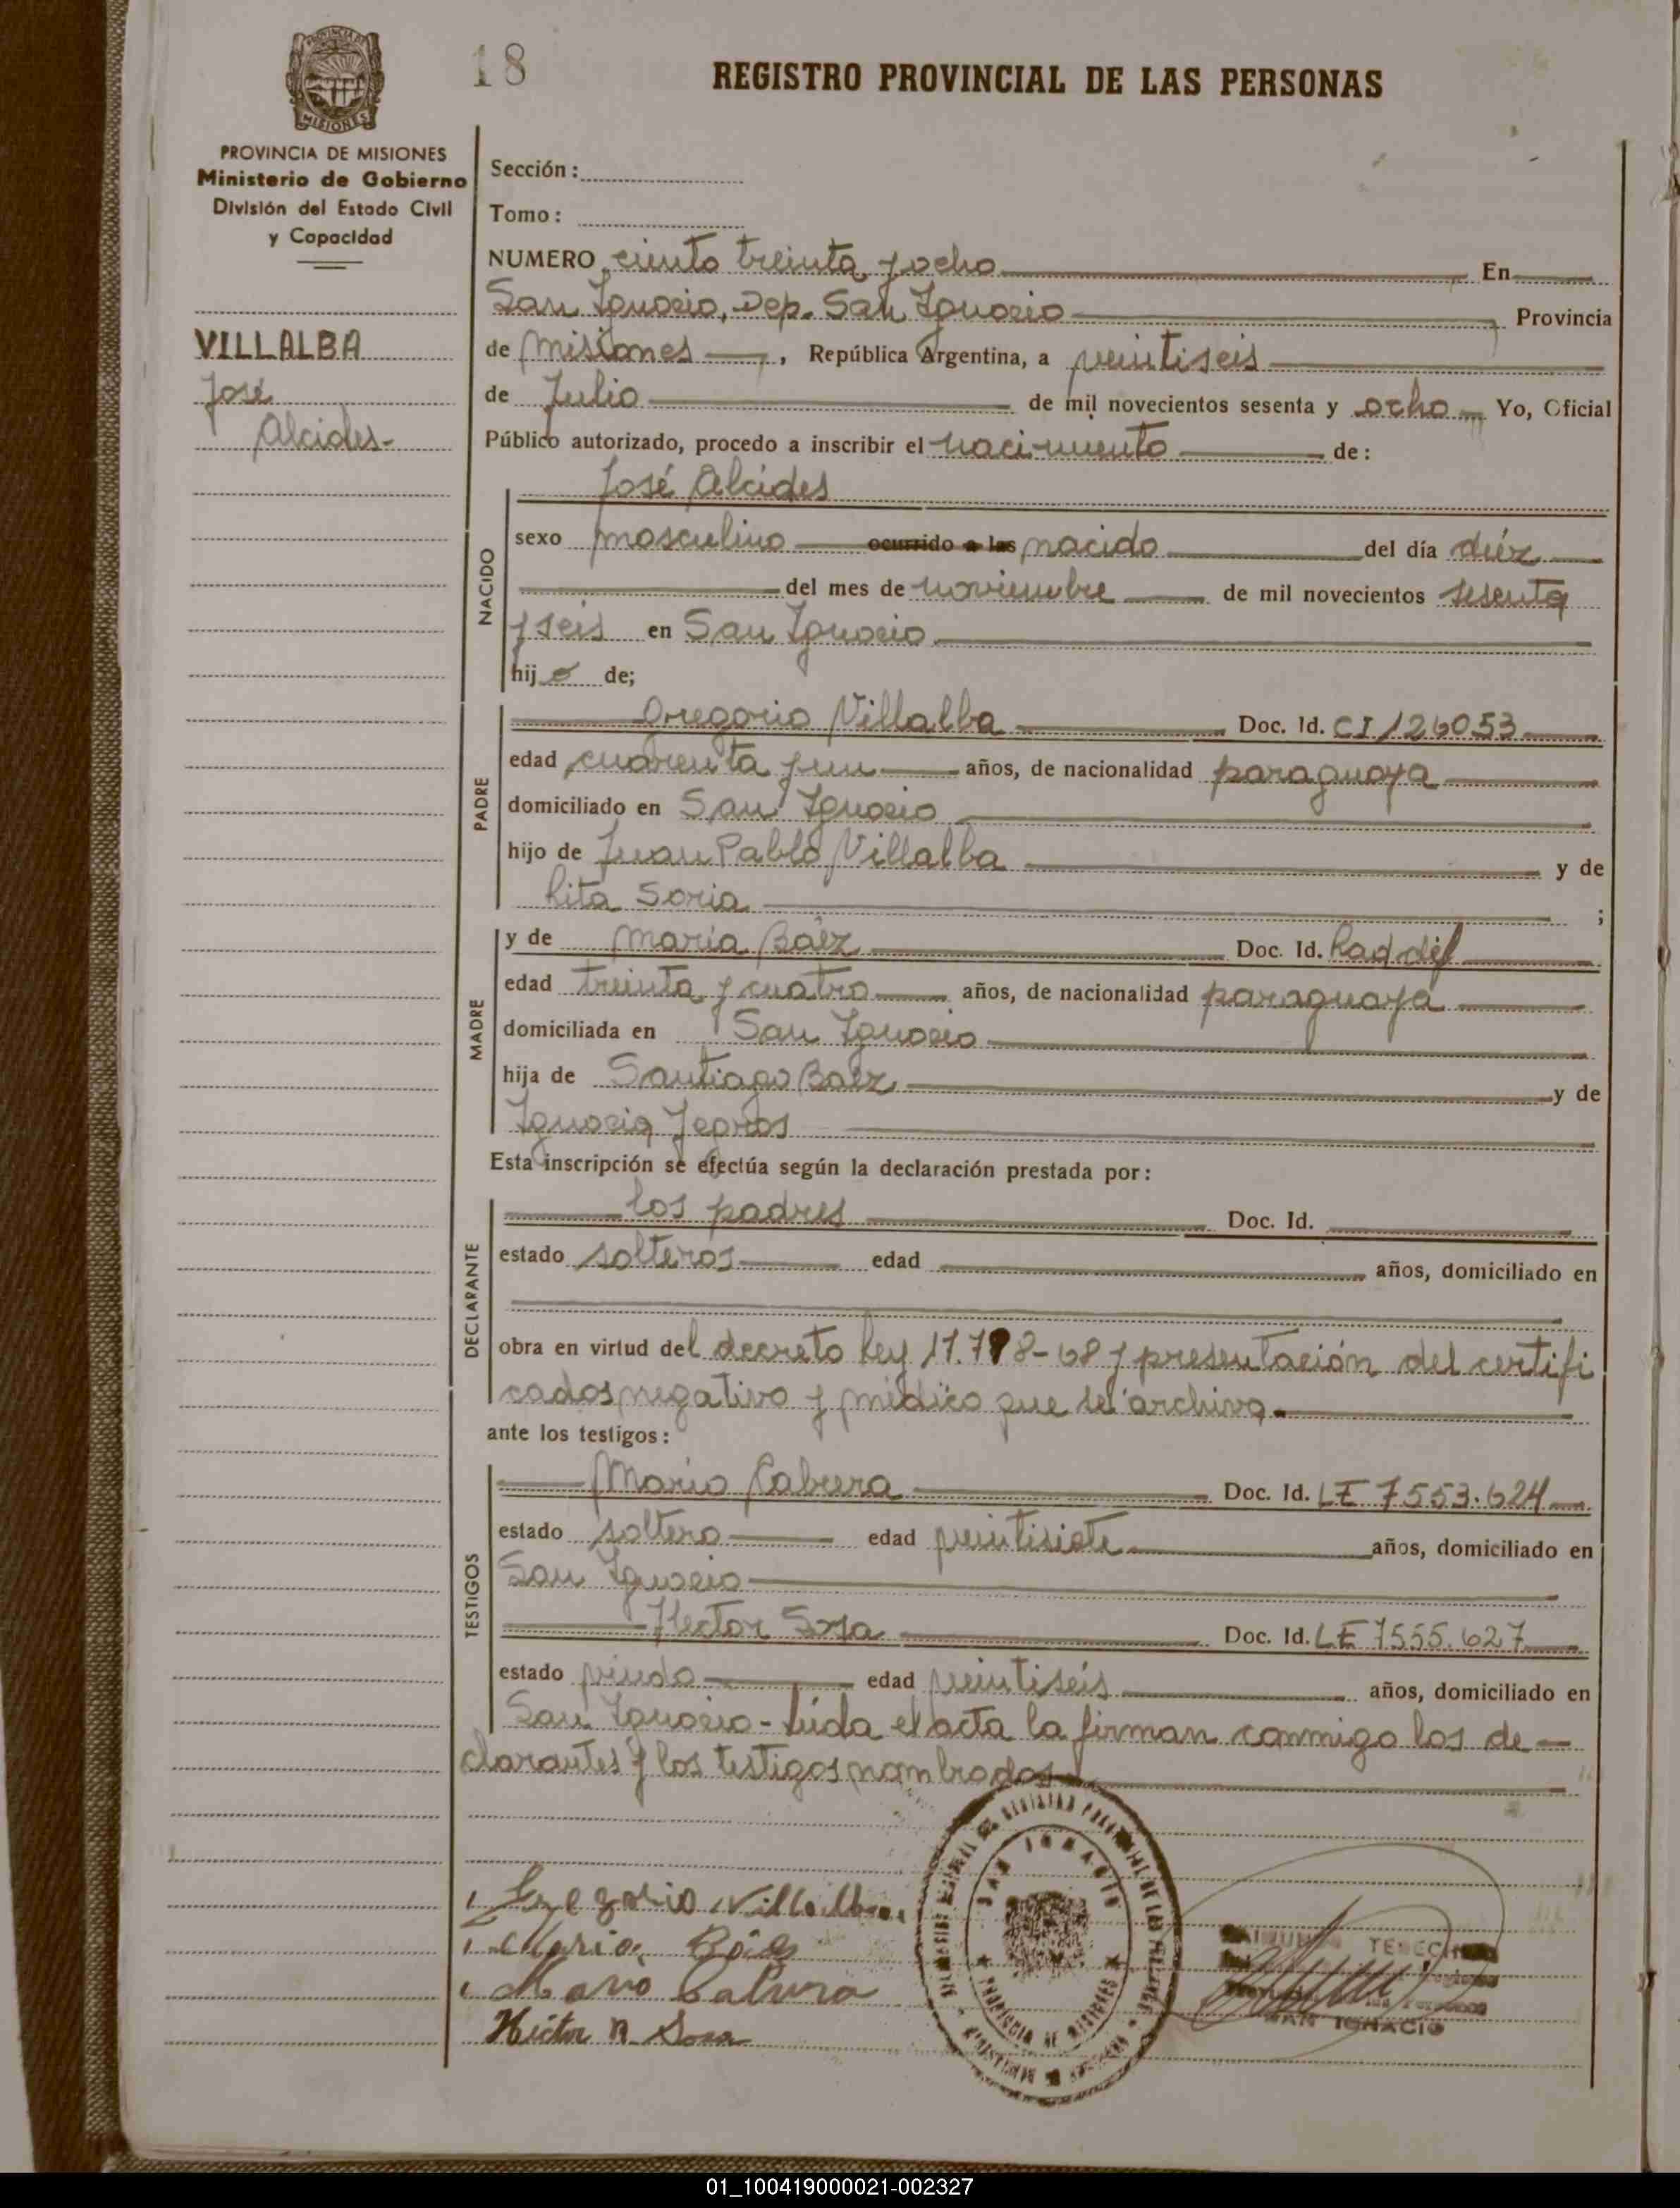 18
REGISTRO PROVINCIAL DE LAS PERSONAS
PROVINCIA DE MISIONES
Ministerio de Gobierno
División del Estado Civil
y Capacidad
VILLALBA
José
Alcides-
Sección:
Tomo:
NUMERO ciento treinta y ocho En
San Ignacio, Dep. San Ignacio Provincia
de Misiones, República Argentina, a veintiseis
de Julio de mil novecientos sesenta y ocho Yo, Oficial
Público autorizado, procedo a inscribir el nacimiento de:
NACIDO
José Alcides
sexo masculino ocurrido a las nacido del día diéz
del mes de noviembre de mil novecientos sesenta
y seis en San Ignacio
hijo de;
PADRE
Gregorio Villalba Doc. Id. CI 126053
edad cuarenta y un años, de nacionalidad paraguaya
domiciliado en San Ignacio
hijo de Juan Pablo Villalba y de
Rita Soria ;
MADRE
y de María Báez Doc. Id.
edad treinta y cuatro años, de nacionalidad paraguaya
domiciliada en San Ignacio
hija de Santiago Baéz y de
Ignacia Yegros
Esta inscripción se efectúa según la declaración prestada por:
DECLARANTE
los padres Doc. Id.
estado solteros edad años, domiciliado en
obra en virtud del decreto ley 17.718-68 y presentación del certifi
cados negativo y médico que se archiva.
ante los testigos:
TESTIGOS
Mario Cabrera Doc. Id. LE 7553.624
estado soltero edad veintisiete años, domiciliado en
San Ignacio
Hector Sosa Doc. Id. LE 7555.627
estado viudo edad veintiseis años, domiciliado en
San Ignacio - Leída el acta la firman conmigo los de-
clarantes y los testigos nombrados
Gregorio Villalba
Maria Báes
Mario Cabrera
Hector R. Sosa
SAN IGNACIO
PROVINCIA DE MISIONES
SAN IGNACIO
01_100419000021-002327